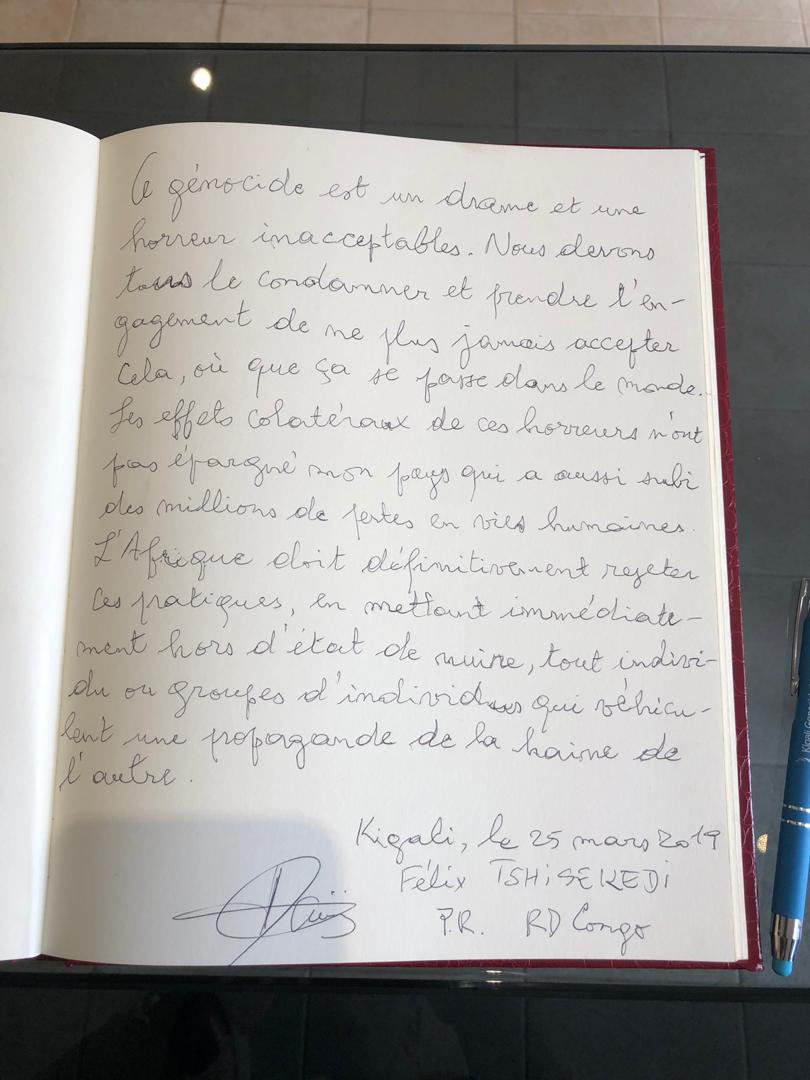 Le génocide est un drame et une
horreur inacceptables. Nous devons
tous le condamner et prendre l'en-
gagement de ne plus jamais accepter
cela, où que ça se passe dans le monde.
Les effets colatéraux de ces horreurs n'ont
pas épargné mon pays qui a aussi subi
des millions de pertes en vies humaines.
L'Afrique doit définitivement rejeter
ces pratiques, en mettant immédiate-
ment hors d'état de nuire, tout indivi-
du ou groupes d'individus qui véhicu-
lent une propagande de la haine de
l'autre.
Kigali, le 25 mars 2019
Félix TSHiSEKEDi
P.R. RD Congo